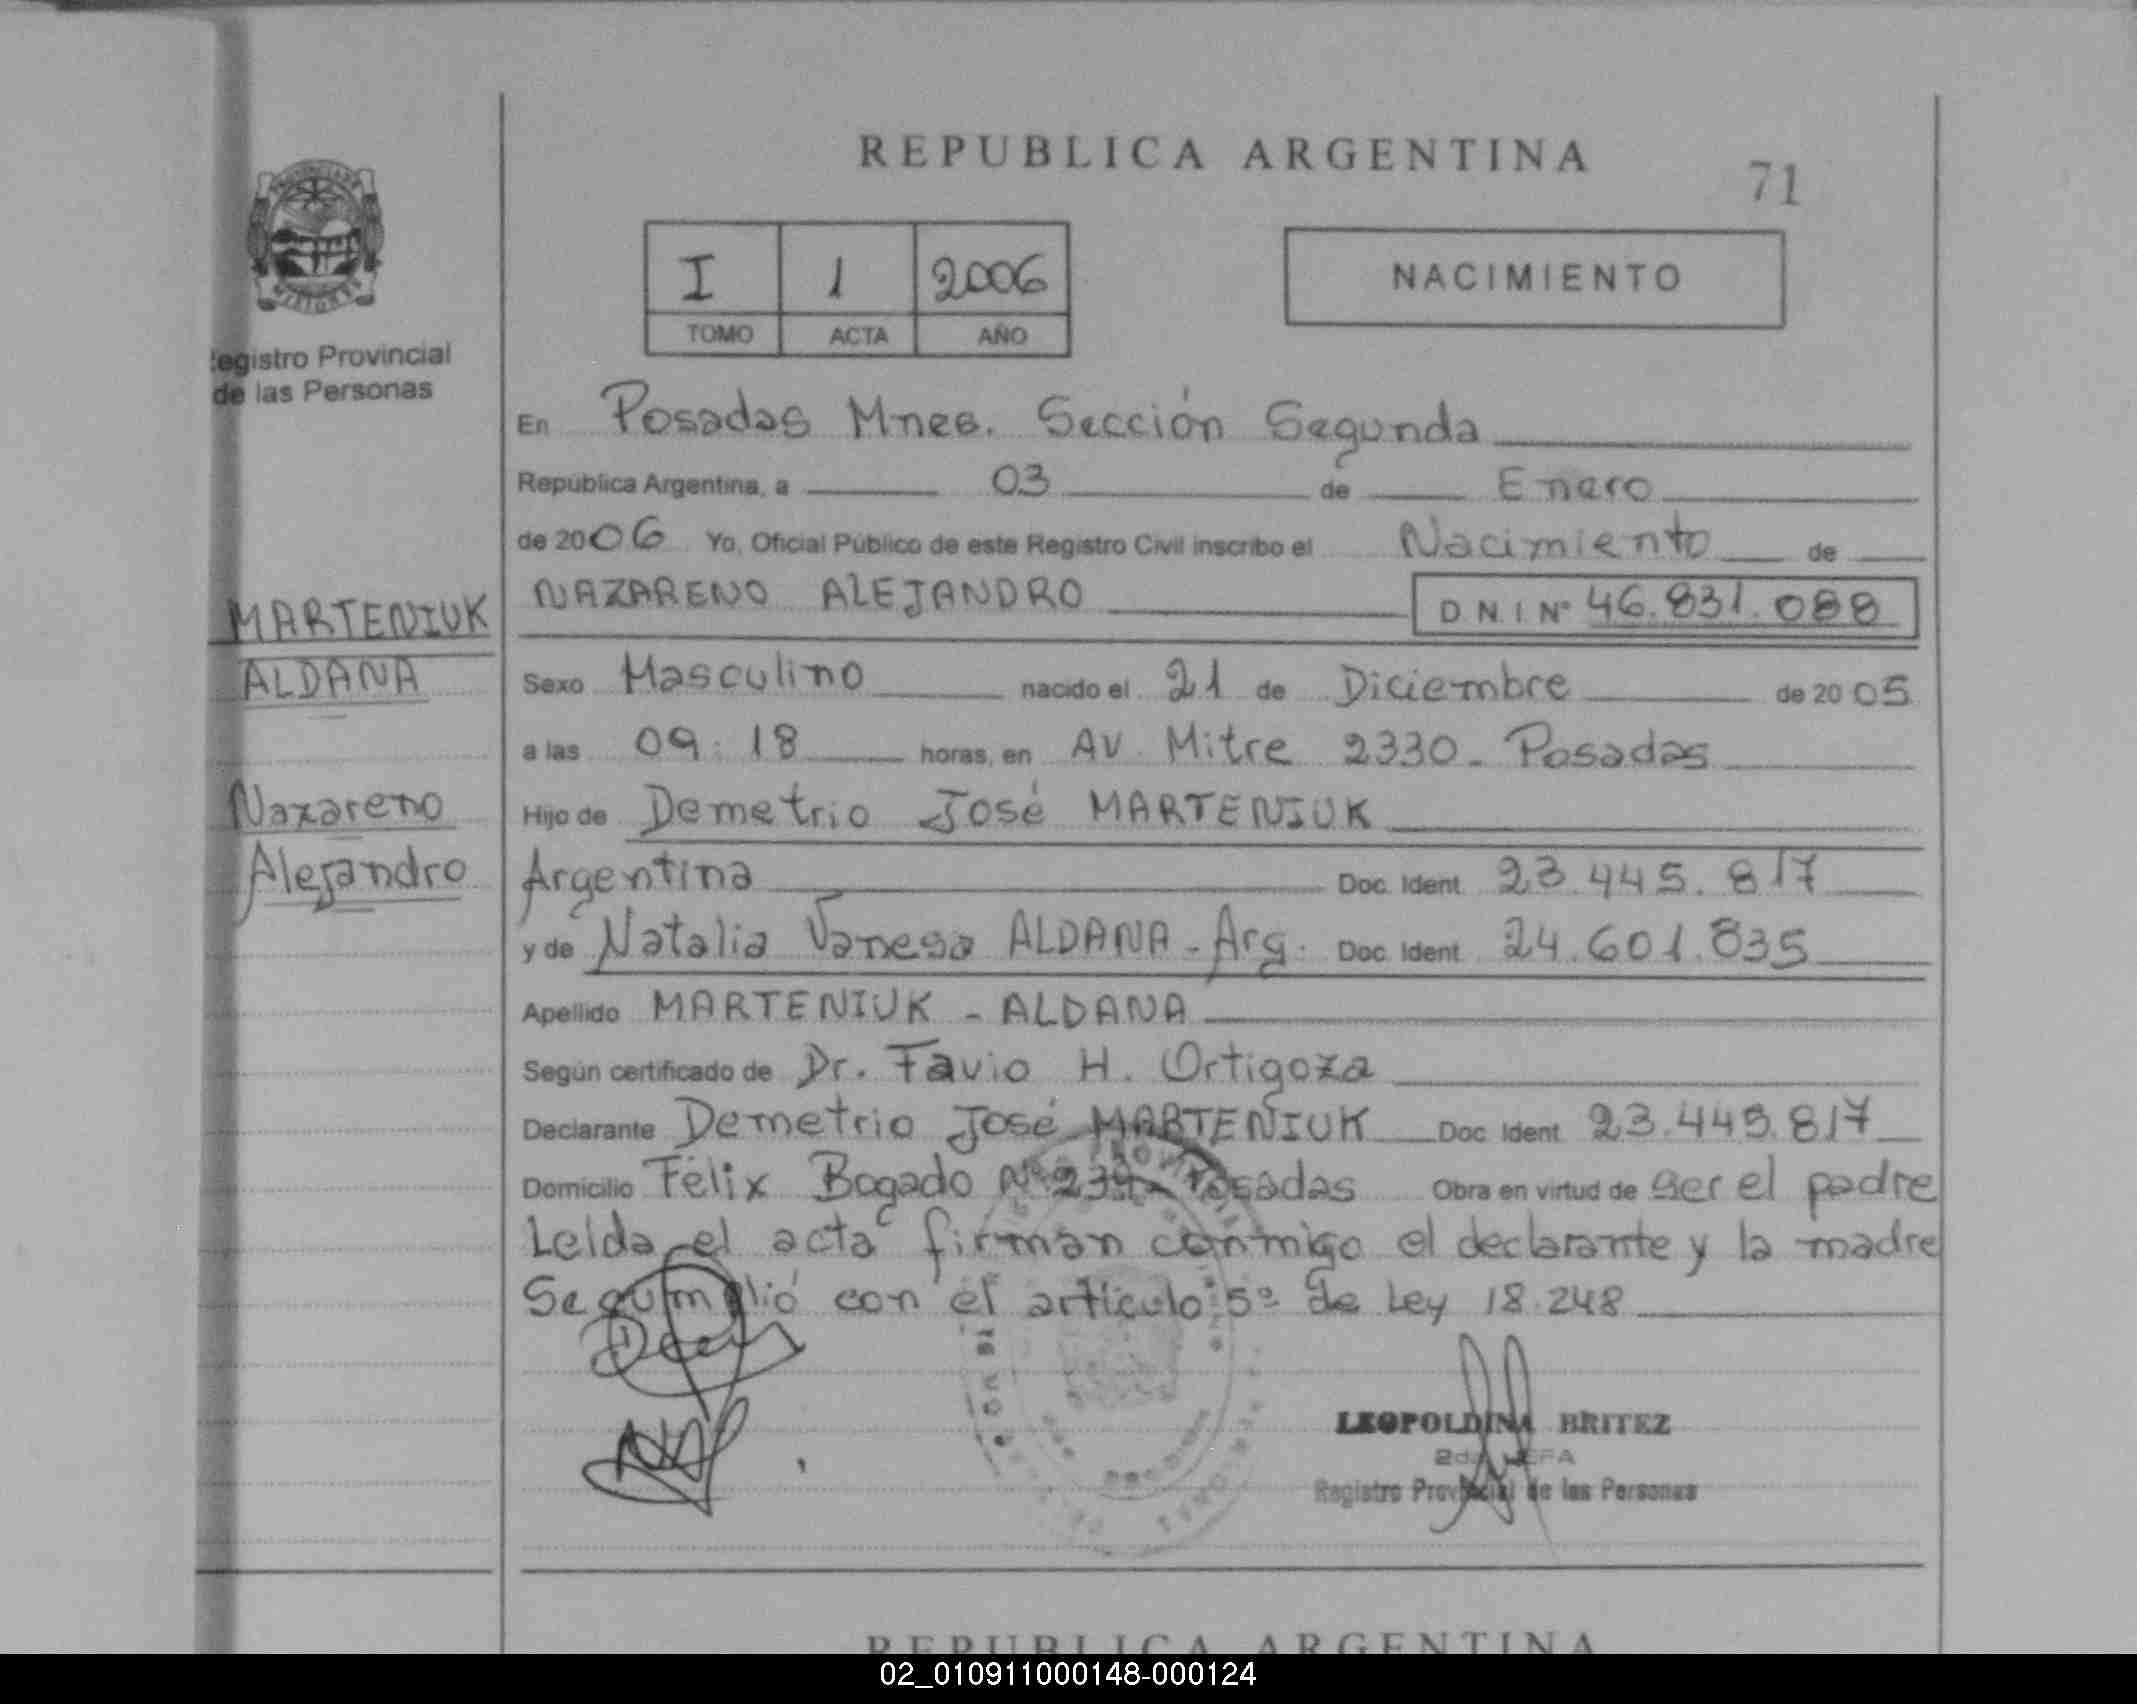 REPUBLICA ARGENTINA
71
I 1 2006
TOMO ACTA AÑO
NACIMIENTO
egistro Provincial
de las Personas
En Posadas Mnes. Sección Segunda
República Argentina, a 03 de Enero
de 2006 Yo, Oficial Público de este Registro Civil inscribo el Nacimiento de
NAZARENO ALEJANDRO D.N.I Nº 46.831.088
MARTENIUK
ALDANA
Nazareno
Alejandro
Sexo Masculino nacido el 21 de Diciembre de 2005
a las 09:18 horas, en Av. Mitre 2330 - Posadas
Hijo de Demetrio José MARTENIUK
Argentina Doc. Ident. 23.445.817
y de Natalia Vanesa ALDANA - Arg. Doc. Ident. 24.601.835
Apellido MARTENIUK - ALDANA
Según certificado de Dr. Favio H. Ortigoza
Declarante Demetrio José MARTENIUK Doc. Ident. 23.445.817
Domicilio Félix Bogado Nº Posadas Obra en virtud de ser el padre
Leida el acta firman conmigo el declarante y la madre
Se cumplió con el artículo 5º de Ley 18.248
LEOPOLDINA BRITEZ
2da JEFA
Registro Provincial de las Personas
REPUBLICA ARGENTINA
02_010911000148-000124